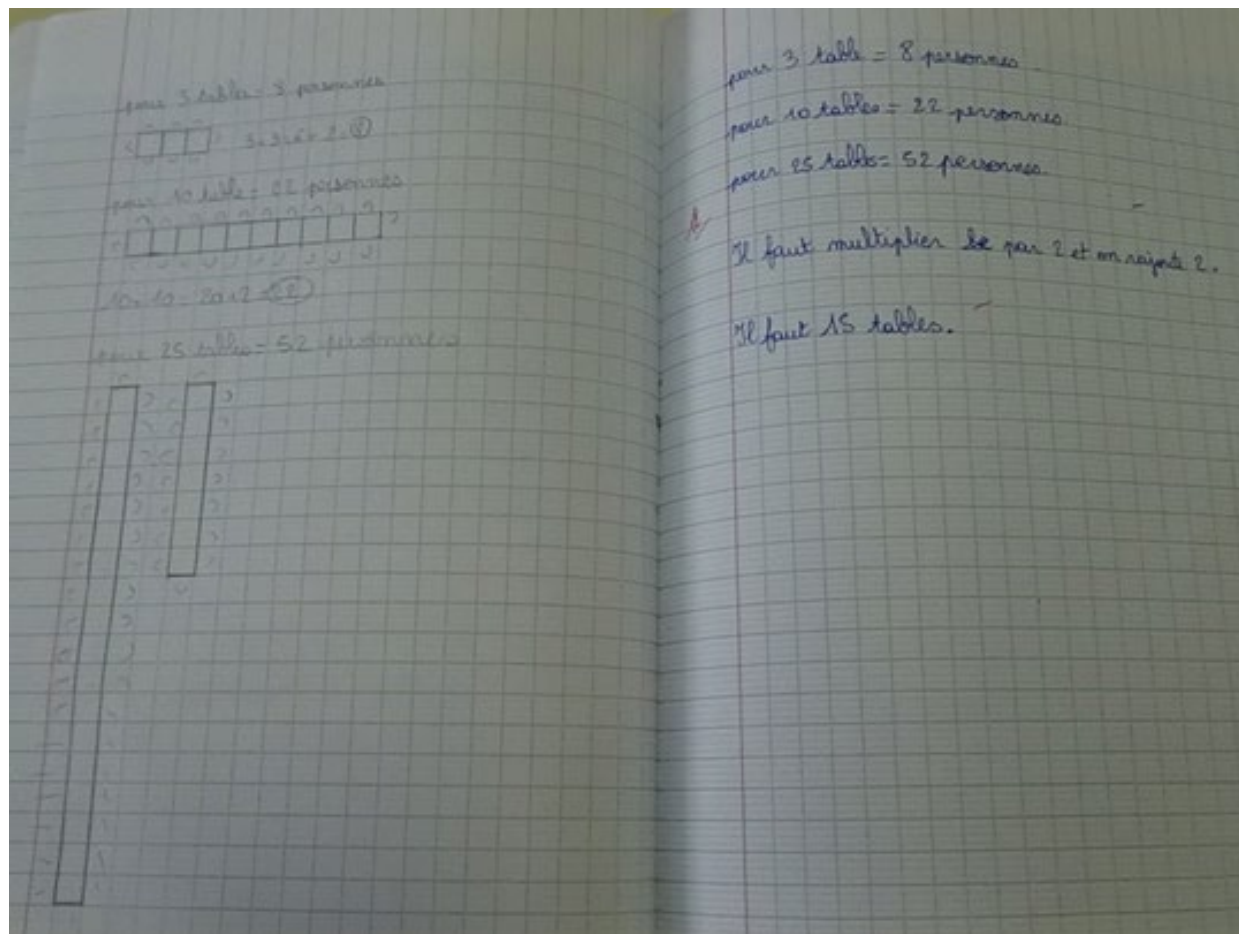 pour 3 tables = 8 personnes
3+3=6+2=8
pour 10 table = 22 personnes
10+10=20+2=22
pour 25 tables = 52 personnes
pour 3 table = 8 personnes
pour 10 tables = 22 personnes.
pour 25 tables= 52 personnes.
Il faut multiplier par 2 et on rajoute 2.
Il faut 15 tables.